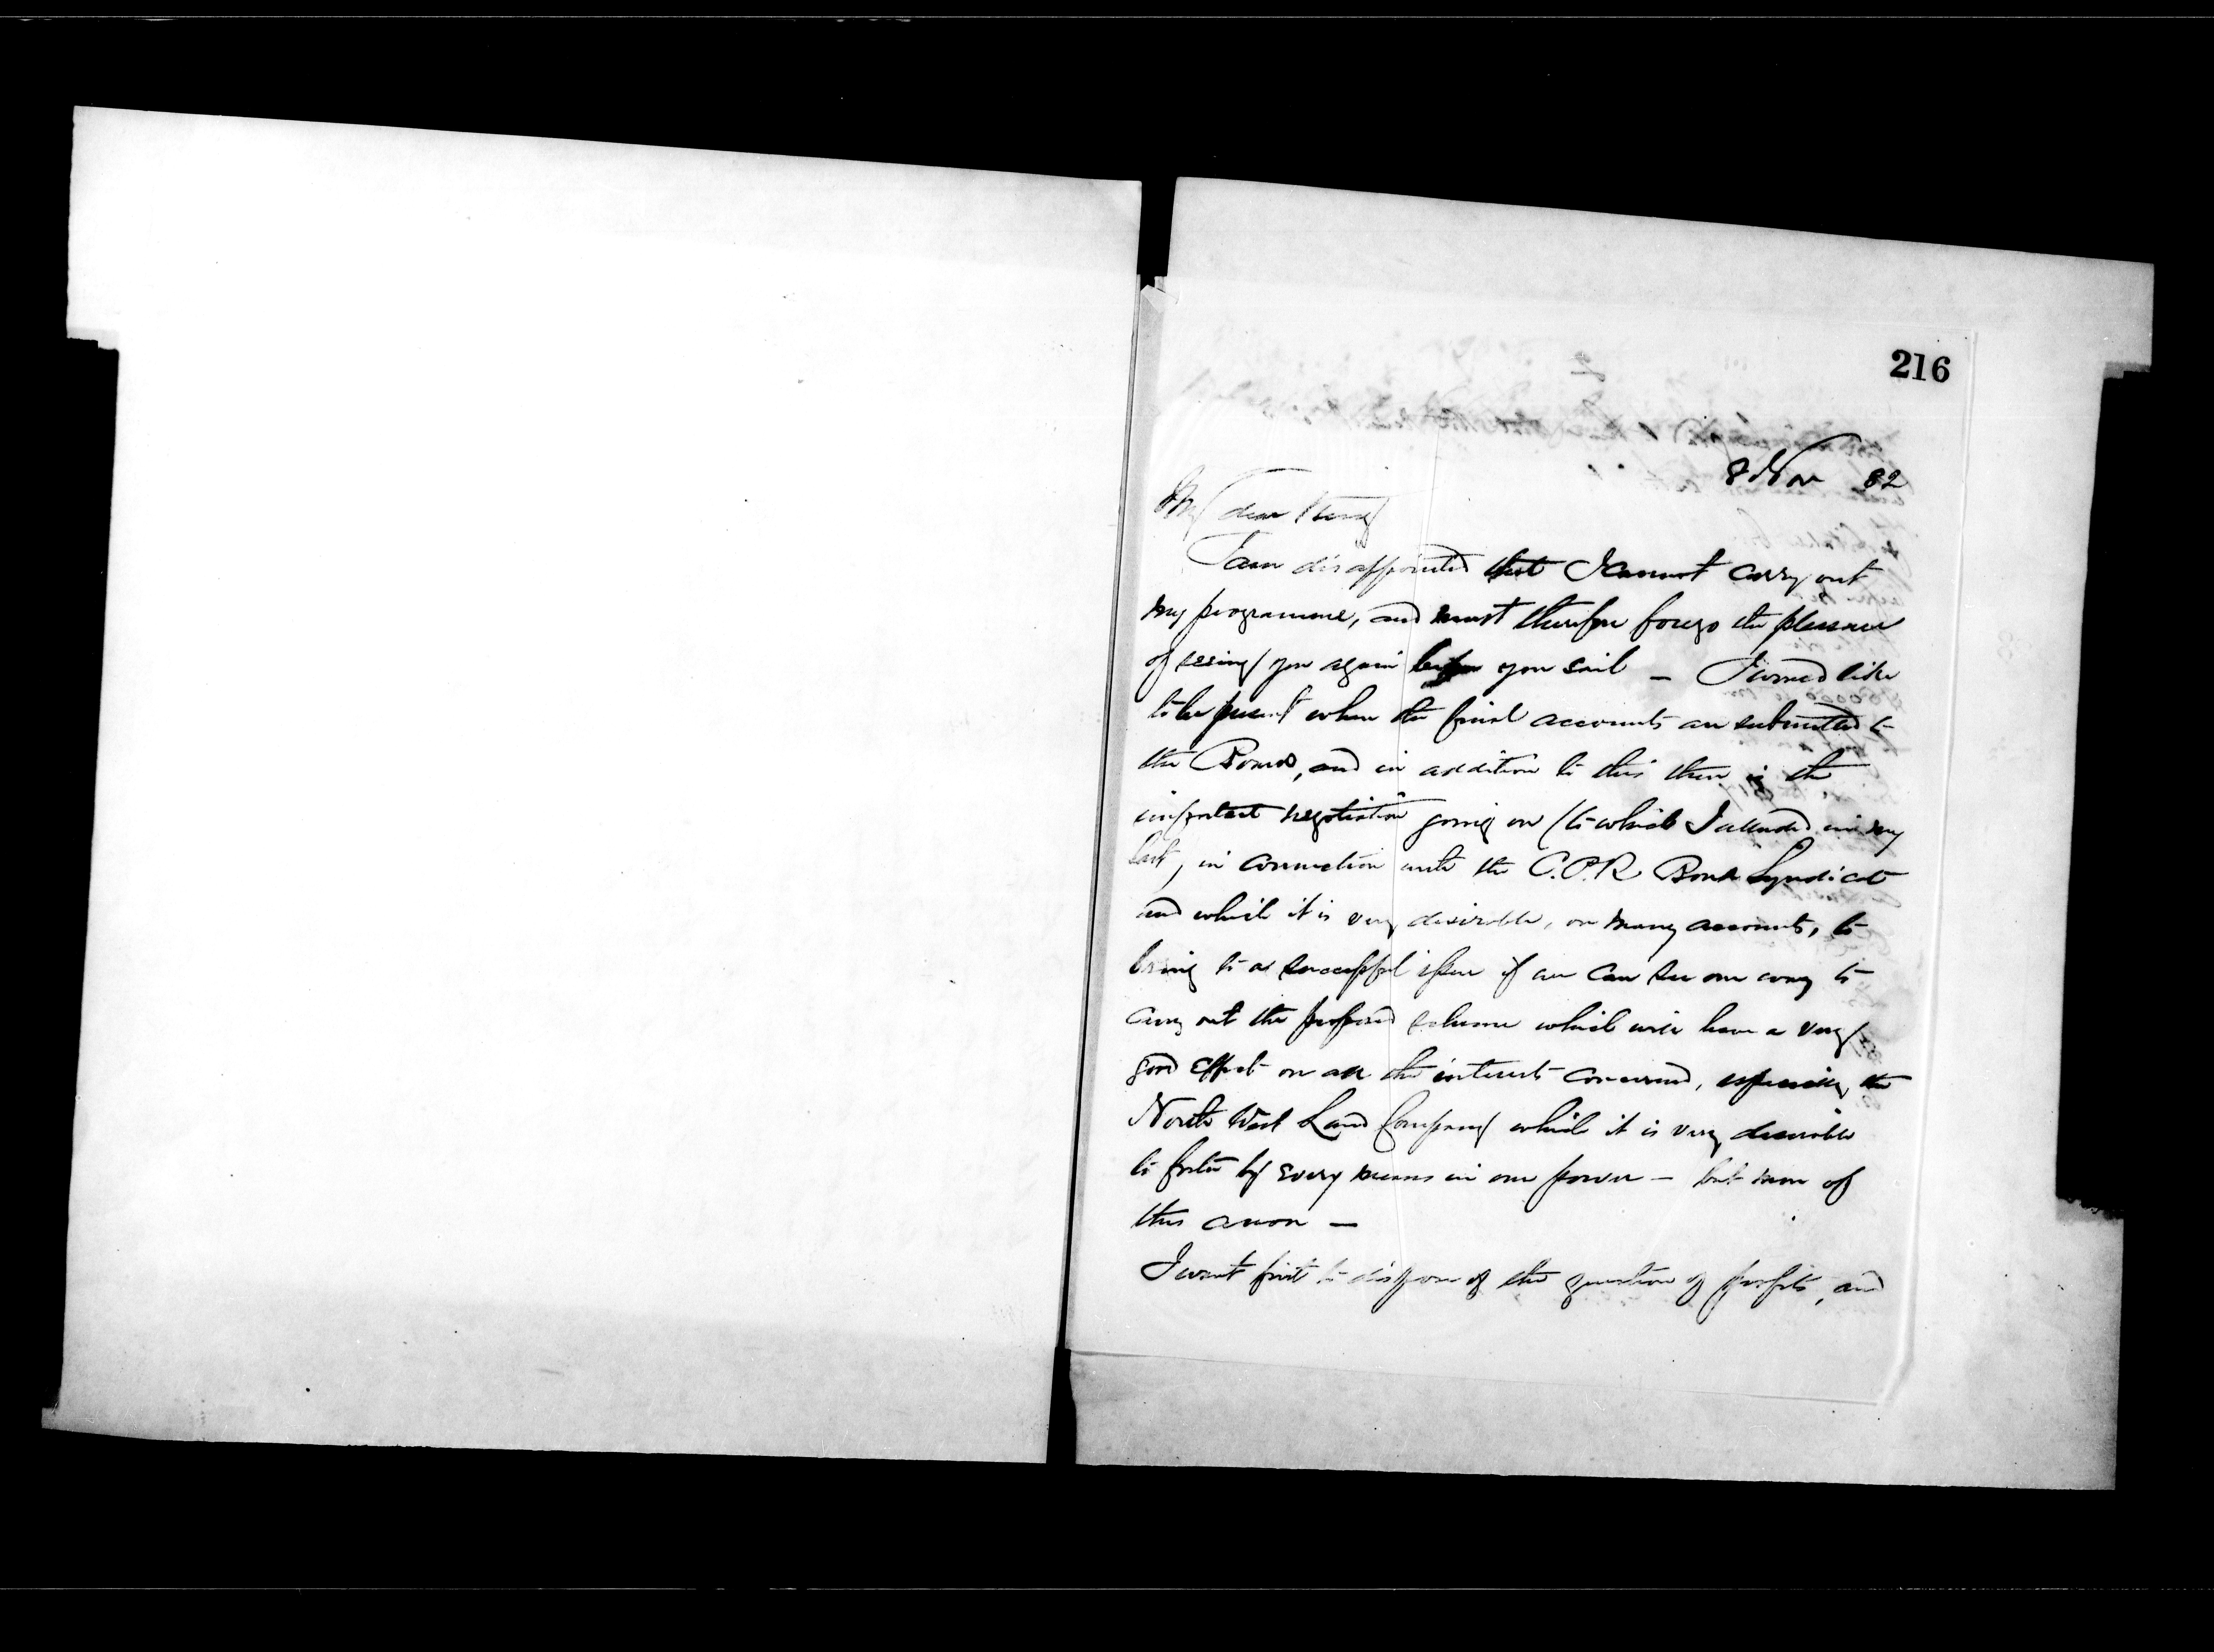 216
8 Nov 82
My dear
I am disappointed that I cannot carry out
my programme, and must therefore forego the pleasure
of seeing you again before you sail — I would like
to be present when the final accounts are submitted to
the Board, and in addition to this there is the
important negotiation going on (to which I alluded in my
last, in connection with the C.P.R Bond Syndicate
and which it is very desirable, on many accounts, to
bring to a successful issue if we can see our way to
carry out the proposed scheme which will have a very
good effect on all the interests concerned, especially the
North West Land Company which it is very desirable
to foster by every means in our power — but more of
this anon —
I want first to dispose of the question of profits, and